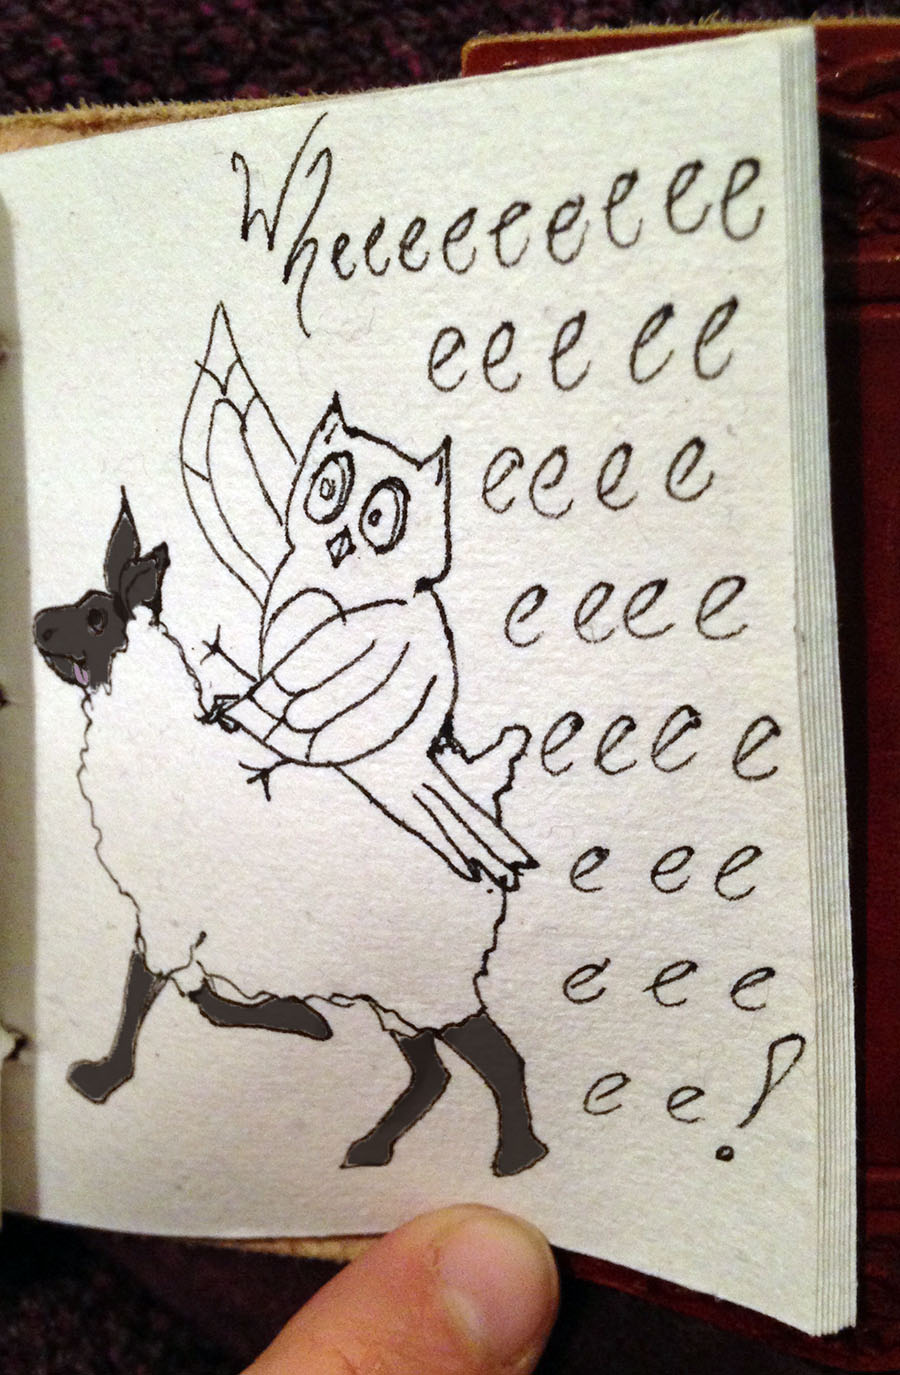 Wheeeeeeeee
eee ee
eeee
e eee
eeee
e ee
e e e
e e!